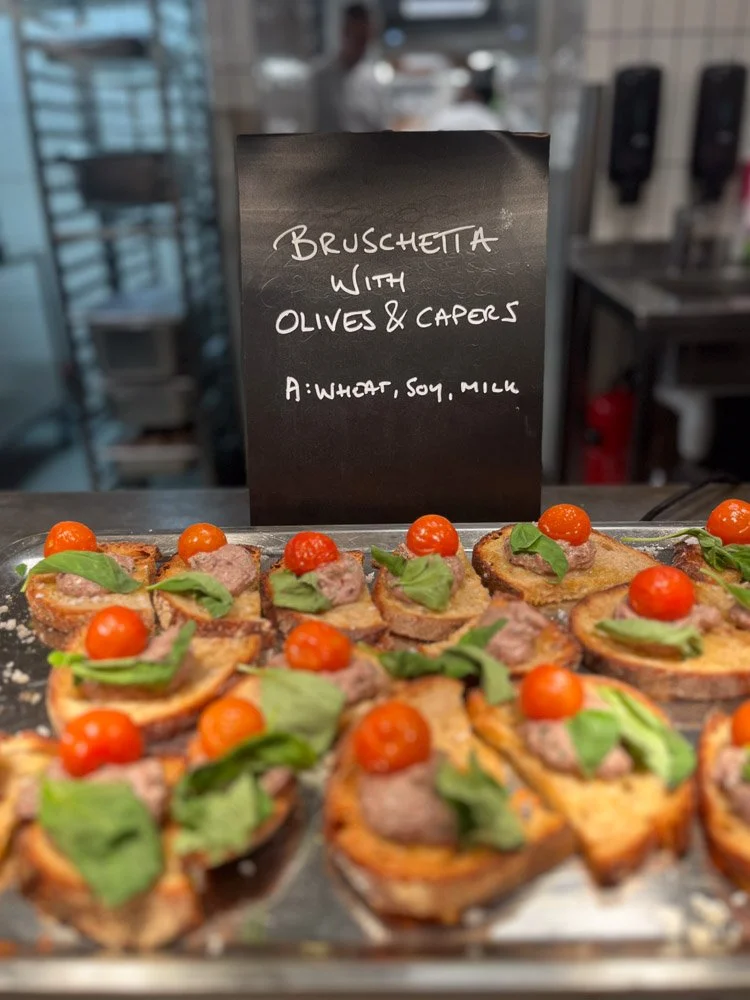 BRUSCHETTA
WITH
OLIVES & CAPERS
A: WHEAT, SOY, MILK